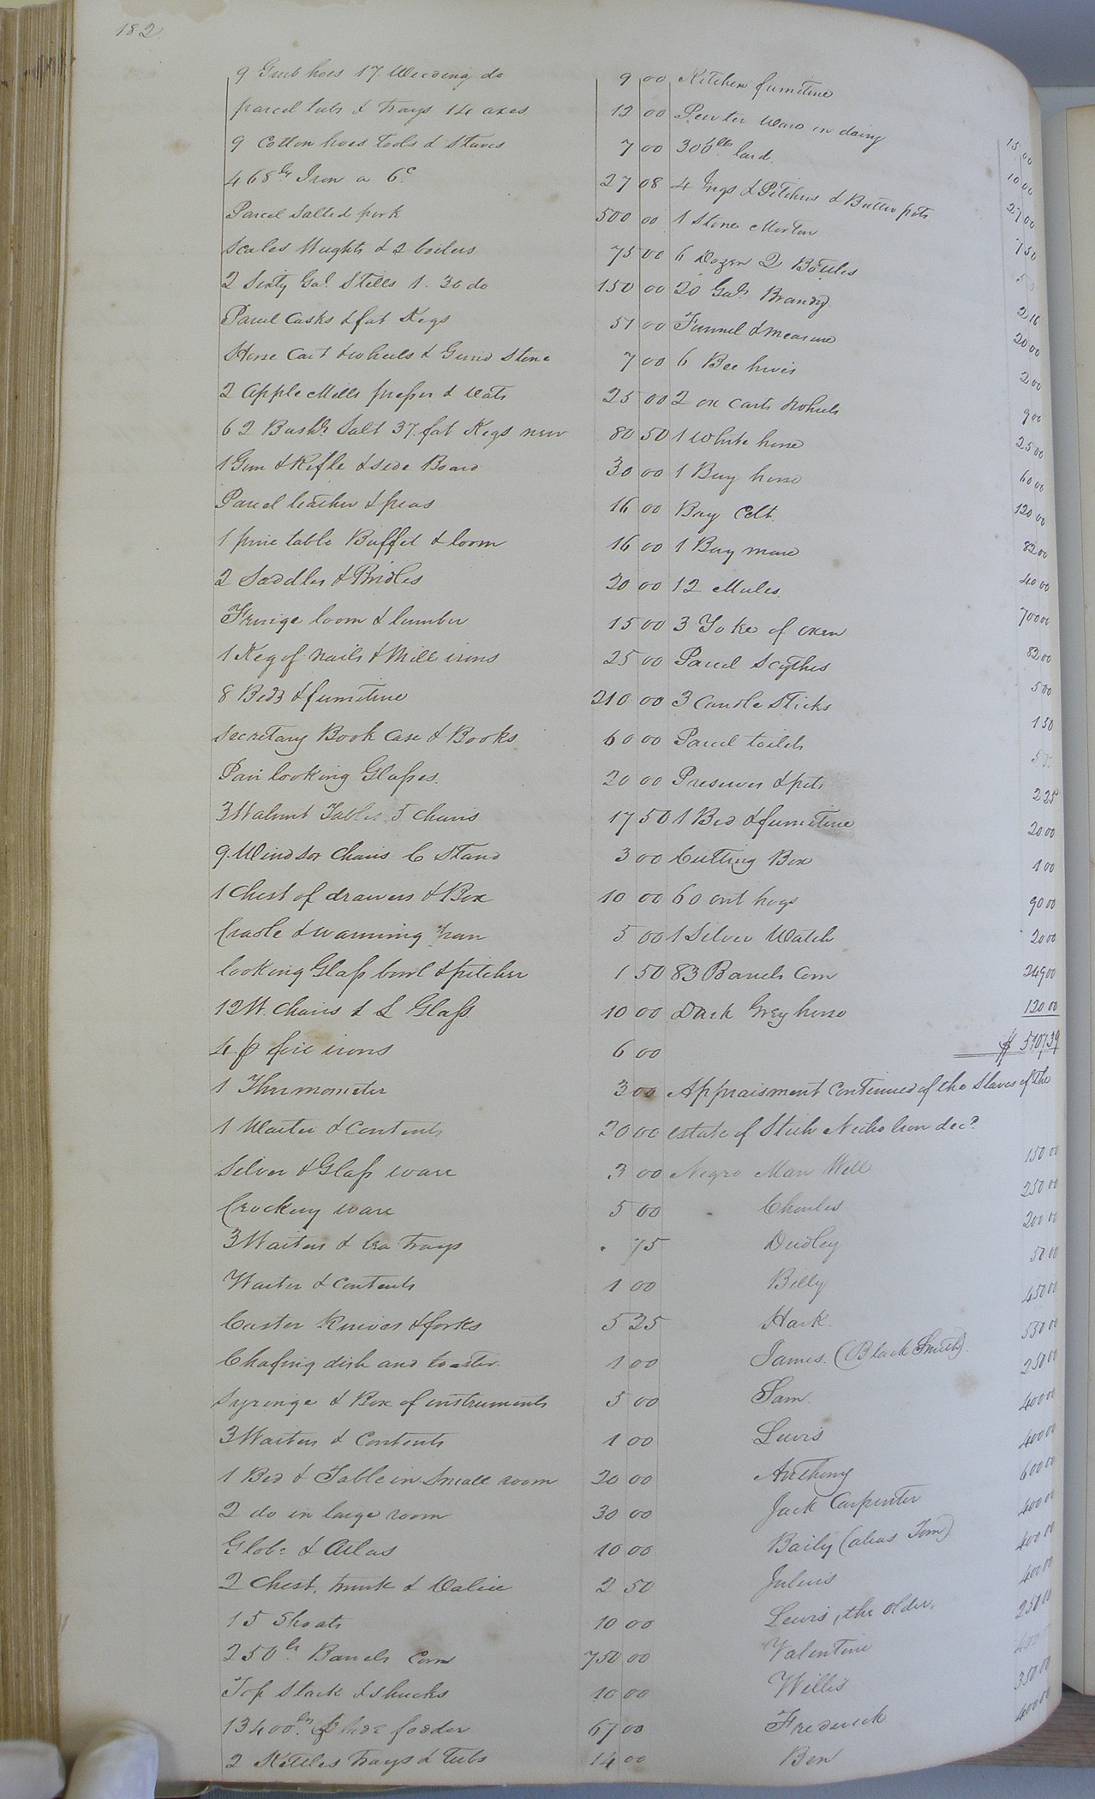 182
9 Grub hoes 17 Weeding do 9 00
parcel tubs & trays 14 axes 12 00
9 Cotton hoes tools & Staves 7 00
468 lbs Iron a 6c 27 08
Parcel Salted pork 500 00
Scales Weights & 2 boilers 75 00
2 Sixty Gal. Stills 1. 30 do 150 00
Parcel Casks & fat Kegs 51 00
Horse Cart & wheels & Grind Stone 7 00
2 Apple Mills presses & Vats 25 00
62 Bushls Salt 37 fat Kegs new 80 50
1 Gun & Rifle & side Board 30 00
Parcel leather & peas 16 00
1 pine table Buffet & loom 16 00
2 Saddles & Bridles 20 00
Fringe loom & lumber 15 00
1 Keg of nails & Mill irons 25 00
8 Beds & furniture 210 00
Secretary Book Case & Books 60 00
Pair looking Glasses. 20 00
3 Walnut Tables 5 chairs 17 50
9 Windsor Chairs C Stand 3 00
1 Chest of drawers & Box 10 00
Cradle & warming pan 5 00
looking Glass bowl & pitcher 1 50
12 W. Chairs & L Glass 10 00
4 p fire irons 6 00
1 Thermometer 3 00
1 Waiter & Contents 20 00
Silver & Glass ware 3 00
Crockery ware 5 00
3 Waiters & tea trays 75
Waiter & Contents 1 00
Castor Knives & forks 5 25
Chafing dish and toaster 1 00
Syringe & Box of instruments 5 00
3 Waiters & Contents 1 00
1 Bed & Table in Small room 20 00
2 do in large room 30 00
Globe & Atlas 10 00
2 Chest, trunk & Valise 2 50
15 Shoats 10 00
250 Barrels Corn 750 00
Top Stack & shucks 10 00
13400 lbs fodder 67 00
2 Kettles trays & Tubs 14 00
Kitchen furniture 15 00
Pewter ware in dairy 10 00
300 lbs lard. 27 00
4 Jugs & Pitchers & Butter pots 7 50
1 Stone Morter
6 Dozen 2 Bottles 2 16
20 Gals Brandy 20 00
Funnel & measure 2 00
6 Bee hives 9 00
2 ox carts & wheels 25 00
1 White horse 60 00
1 Bay horse 120 00
Bay Colt. 82 00
1 Bay mare 40 00
12 Mules. 700 00
3 Yoke of oxen 82 00
Parcel Scythes 5 00
3 Candle Sticks 1 50
Parcel
Preserves & pots 2 25
1 Bed & furniture 20 00
Cutting Box 1 00
60 out hogs 90 00
1 Silver Watch 20 00
83 Barrels Corn 249 00
Dark Grey horse 120 00
$
Appraisment Continued of the Slaves of the
estate of decd.
Negro Man Will 150 00
Charles 250 00
Dudley 200 00
Billy 50 00
Hark. 450 00
James. (Black Smith). 550 00
Sam. 250 00
Lewis 400 00
Anthony 400 00
Jack Carpenter 600 00
Baily (alias Tom) 400 00
Julius 400 00
Lewis, the older. 400 00
Valentine 250 00
Willis
Frederick 350 00
Ben 400 00